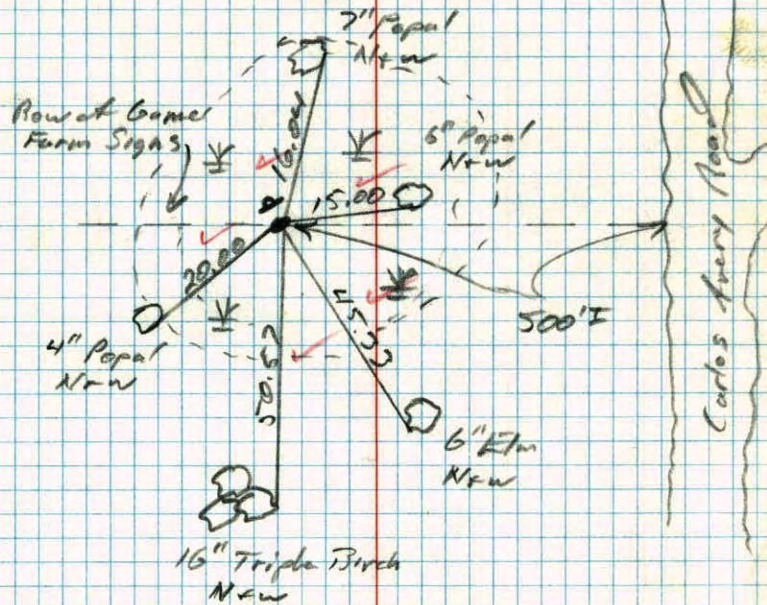 7" Popal
N+W
Row of Game
Farm Signs
6" Popal
N+W
15.00
20.00
500'±
4" Popal
N+W
45.53
50.52
6" Elm
N+W
16" Triple Birch
N+W
Carlos Avery Road